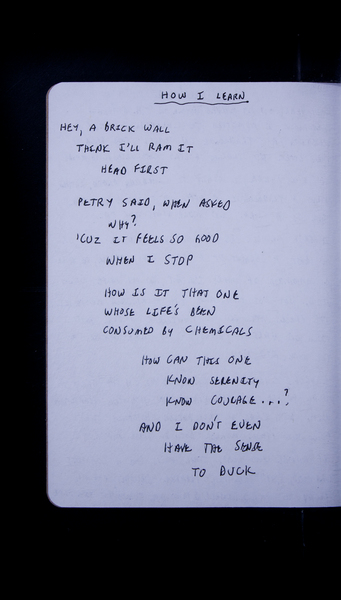 HOW I LEARN
HEY, A BRICK WALL
THINK I'LL RAM IT
HEAD FIRST
PETRY SAID, WHEN ASKED
WHY?
'CUZ IT FEELS SO GOOD
WHEN I STOP
HOW IS IT THAT ONE
WHOSE LIFE'S BEEN
CONSUMED BY CHEMICALS
HOW CAN THIS ONE
KNOW SERENITY
KNOW COURAGE...?
AND I DON'T EVEN
HAVE THE SENSE
TO DUCK